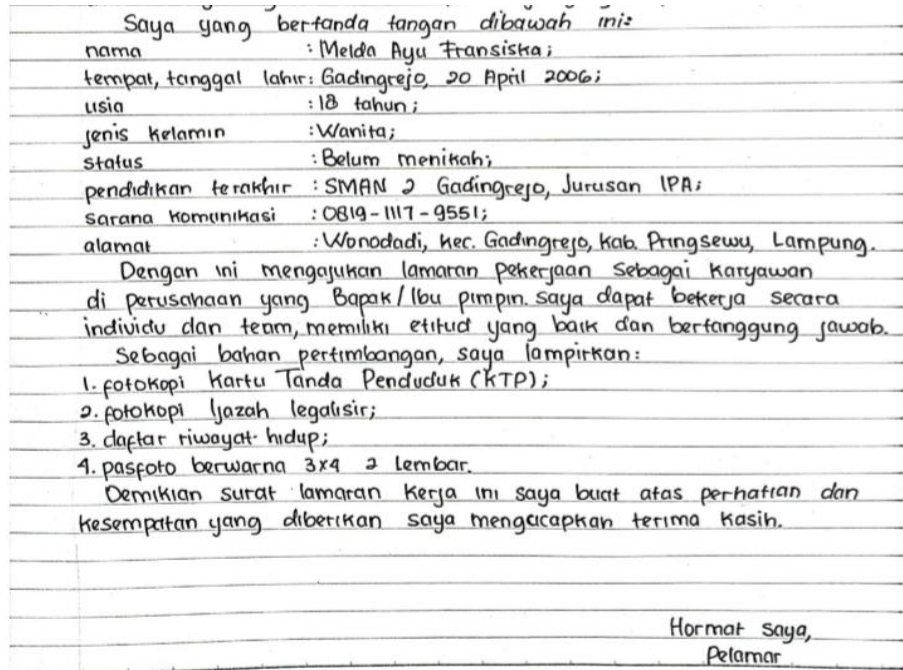 Saya yang bertanda tangan dibawah ini:
nama : Melda Ayu Fransiska;
tempat, tanggal lahir : Gadingrejo, 20 April 2006;
usia : 18 tahun;
jenis kelamin : Wanita;
status : Belum menikah;
pendidikan terakhir : SMAN 2 Gadingrejo, Jurusan IPA;
sarana komunikasi : 0819-1117-9551;
alamat : Wonodadi, kec. Gadingrejo, kab. Pringsewu, Lampung.
Dengan ini mengajukan lamaran pekerjaan sebagai karyawan
di perusahaan yang Bapak/Ibu pimpin. saya dapat bekerja secara
individu dan team, memiliki etitud yang baik dan bertanggung jawab.
Sebagai bahan pertimbangan, saya lampirkan:
1. fotokopi Kartu Tanda Penduduk (KTP);
2. fotokopi Ijazah legalisir;
3. daftar riwayat hidup;
4. pasfoto berwarna 3x4 2 lembar.
Demikian surat lamaran kerja ini saya buat atas perhatian dan
kesempatan yang diberikan saya mengucapkan terima kasih.
Hormat saya,
Pelamar